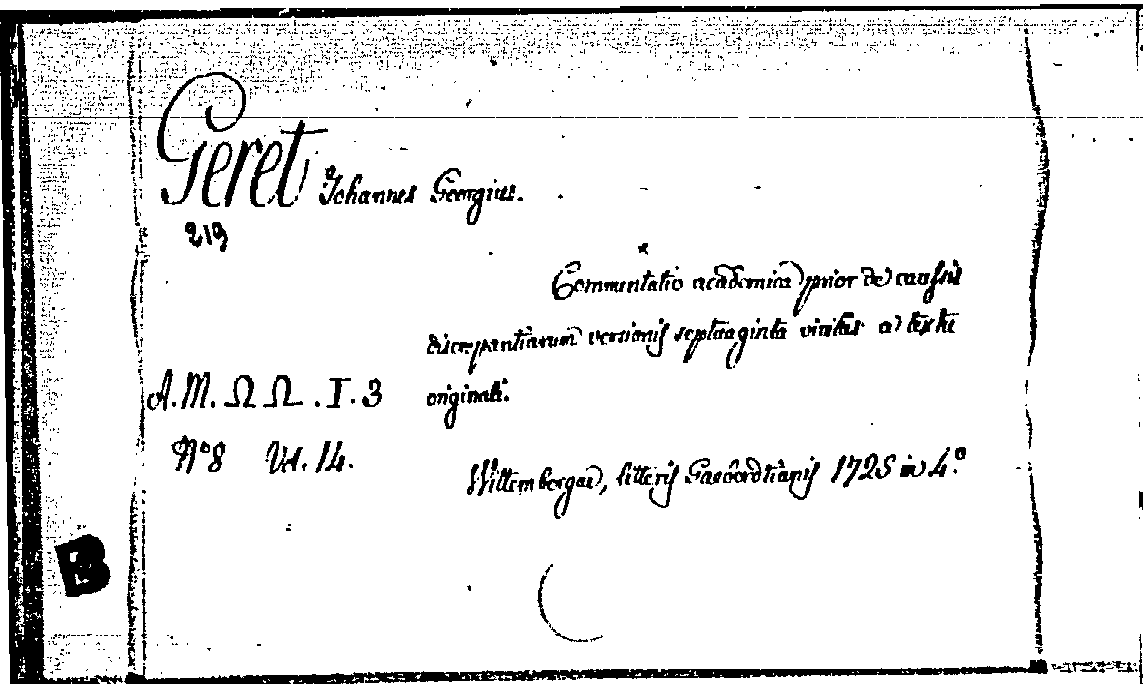 Geret Johannes Georgius.
219
Commentatio academica prior de caussis
discrepantiarum versionis septuaginta viralis a textu
originali.
A. M. Ω Ω . I. 3
N° 8 Vol. 14.
Wittembergae, litteris Gaeberdtianis 1725 in 4.°
B